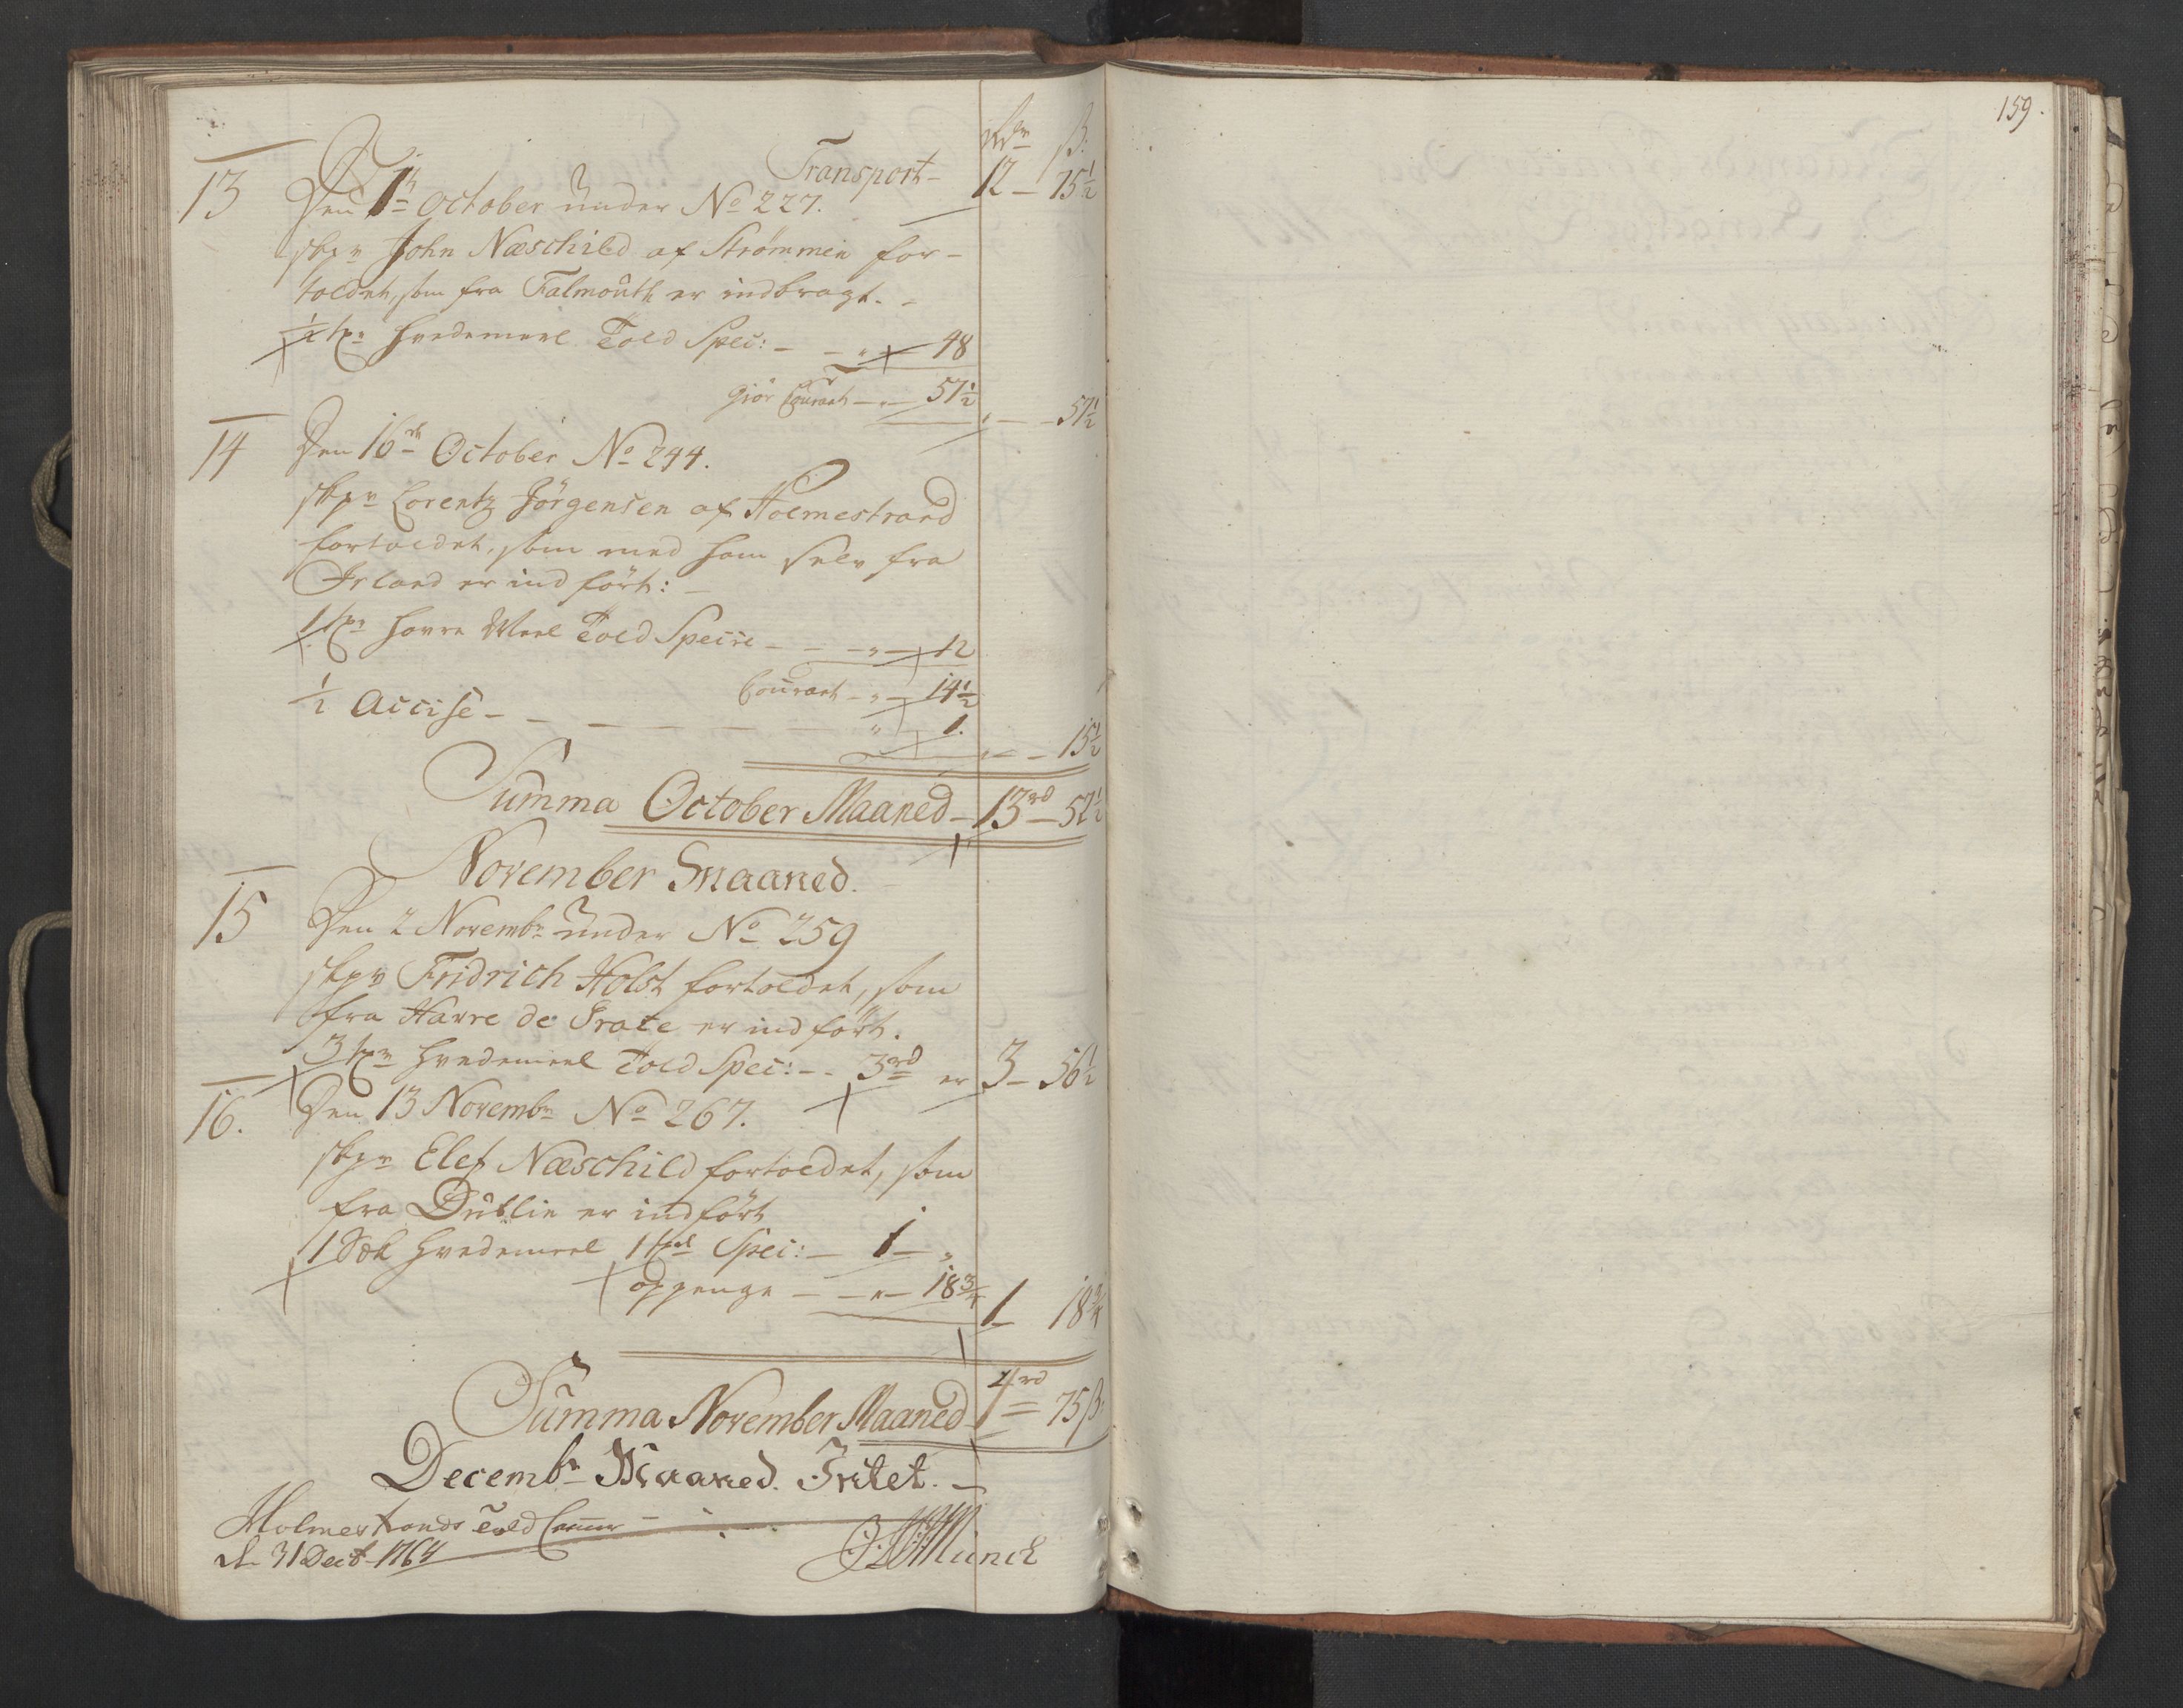 Rdr ß:
Transport - 12 - 75½
13 Den 1te October under No 227.
skpr John Næschild af Strømmen for-
toldet, som fra Falmouth er indbragt. -
½ tr Hvedemeel Told Spec: - - " - 48
giör Courant - " - 57½ " - 57½
14 Den 16de October No 244.
skpr Lorentz Jörgensen af Holmestrand
fortoldet, som med ham selv fra
Irland er ind fört: -
1 tr Havre Meel Told Specie - - - " - 12
Courant - " - 14½
½ Accise - - - - - - " - 1. " - 15½
Summa October Maaned - 13rd - 52½
November Maaned.
15 Den 2 Novembr under No 259
skpr Fridrich Holst fortoldet, som
fra Havre de Grace er ind fört.
3 tr Hvedemeel Told Spec: - - 3rd er 3 - 56½
16. Den 13 Novembr No 267.
skpr Elef Næschild fortoldet, som
fra Dublin er indfört
1 Sæk Hvedemeel Spec: - 1 - "
opgenge - - " - 18¾ 1 - 18¾
Summa November Maaned 4rd = 75 ß:
Decembr Maaned. Intet. -
Holmestrands Told Cammer -
d. 31 Decb 1764 Munch
159.